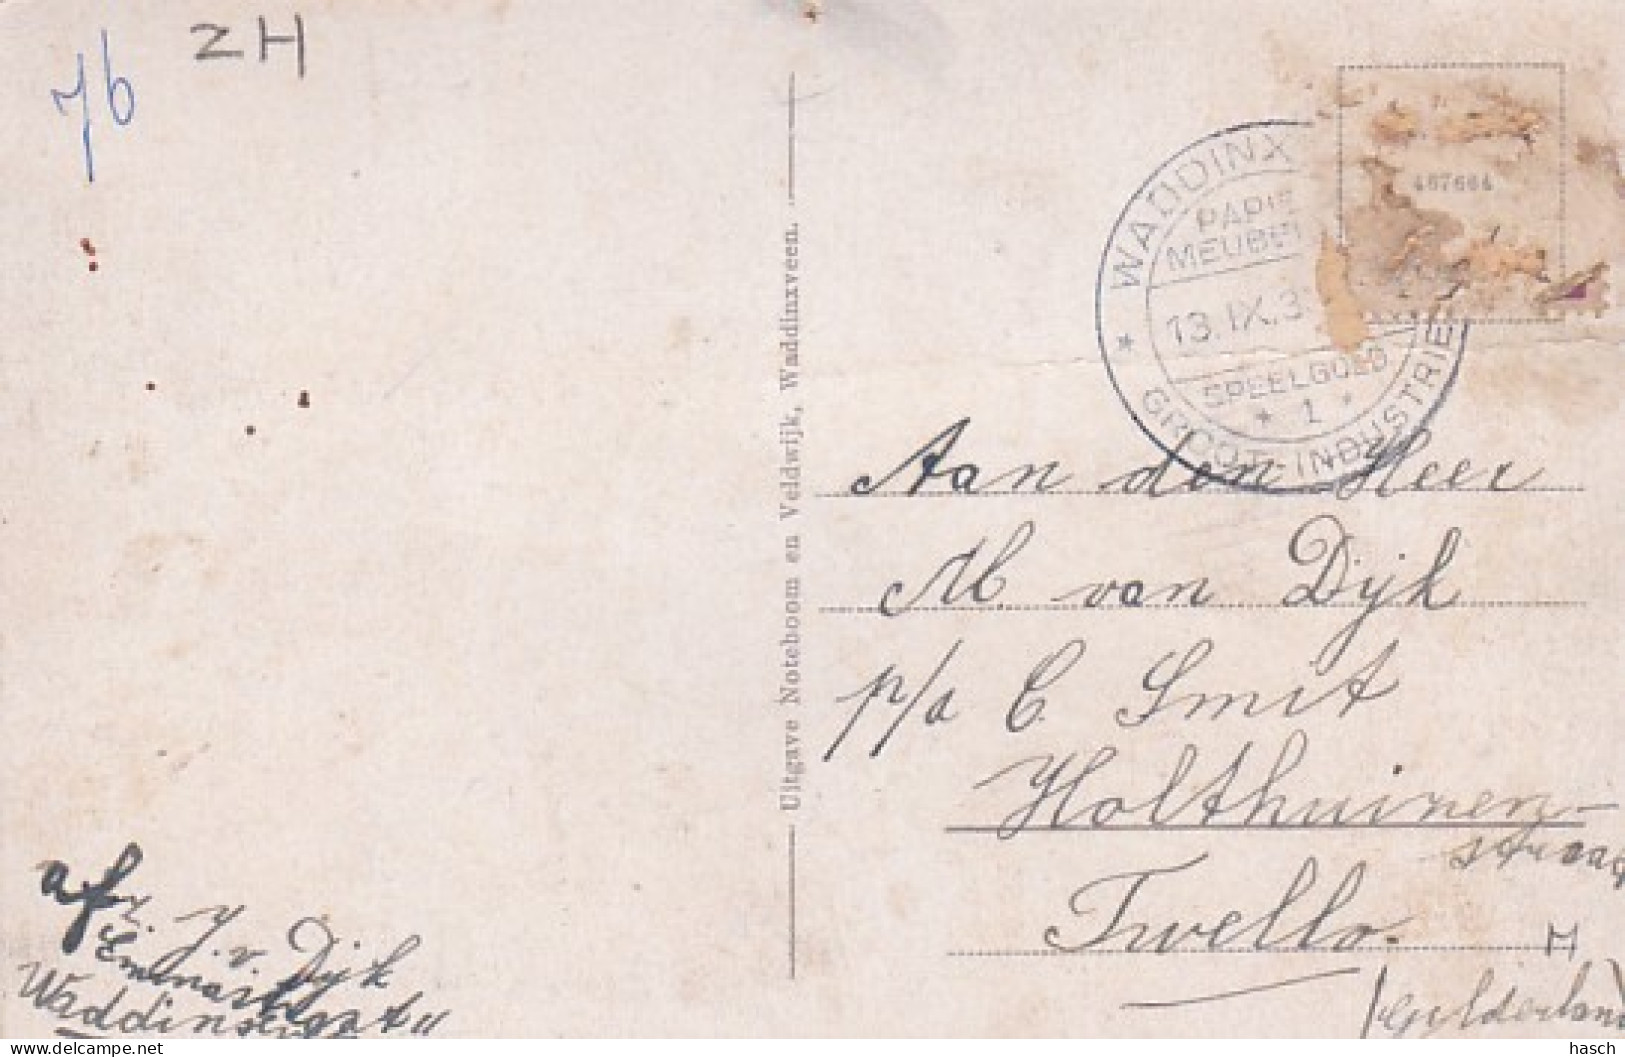 76
ZH
Uitgave Noteboom en Veldwijk, Waddinxveen.
WADDINX
PAPIE
MEUBEL
13.IX.3
SPEELGOED
* 1 *
* GROOT-INDUSTRIE
467664
Aan den Heer
M. van Dijk
p/a C. Smit
Holthuizen-
straat
Twello.
M
(Gelderland)
afz. J. v. Dijk
Emmastr
hasch